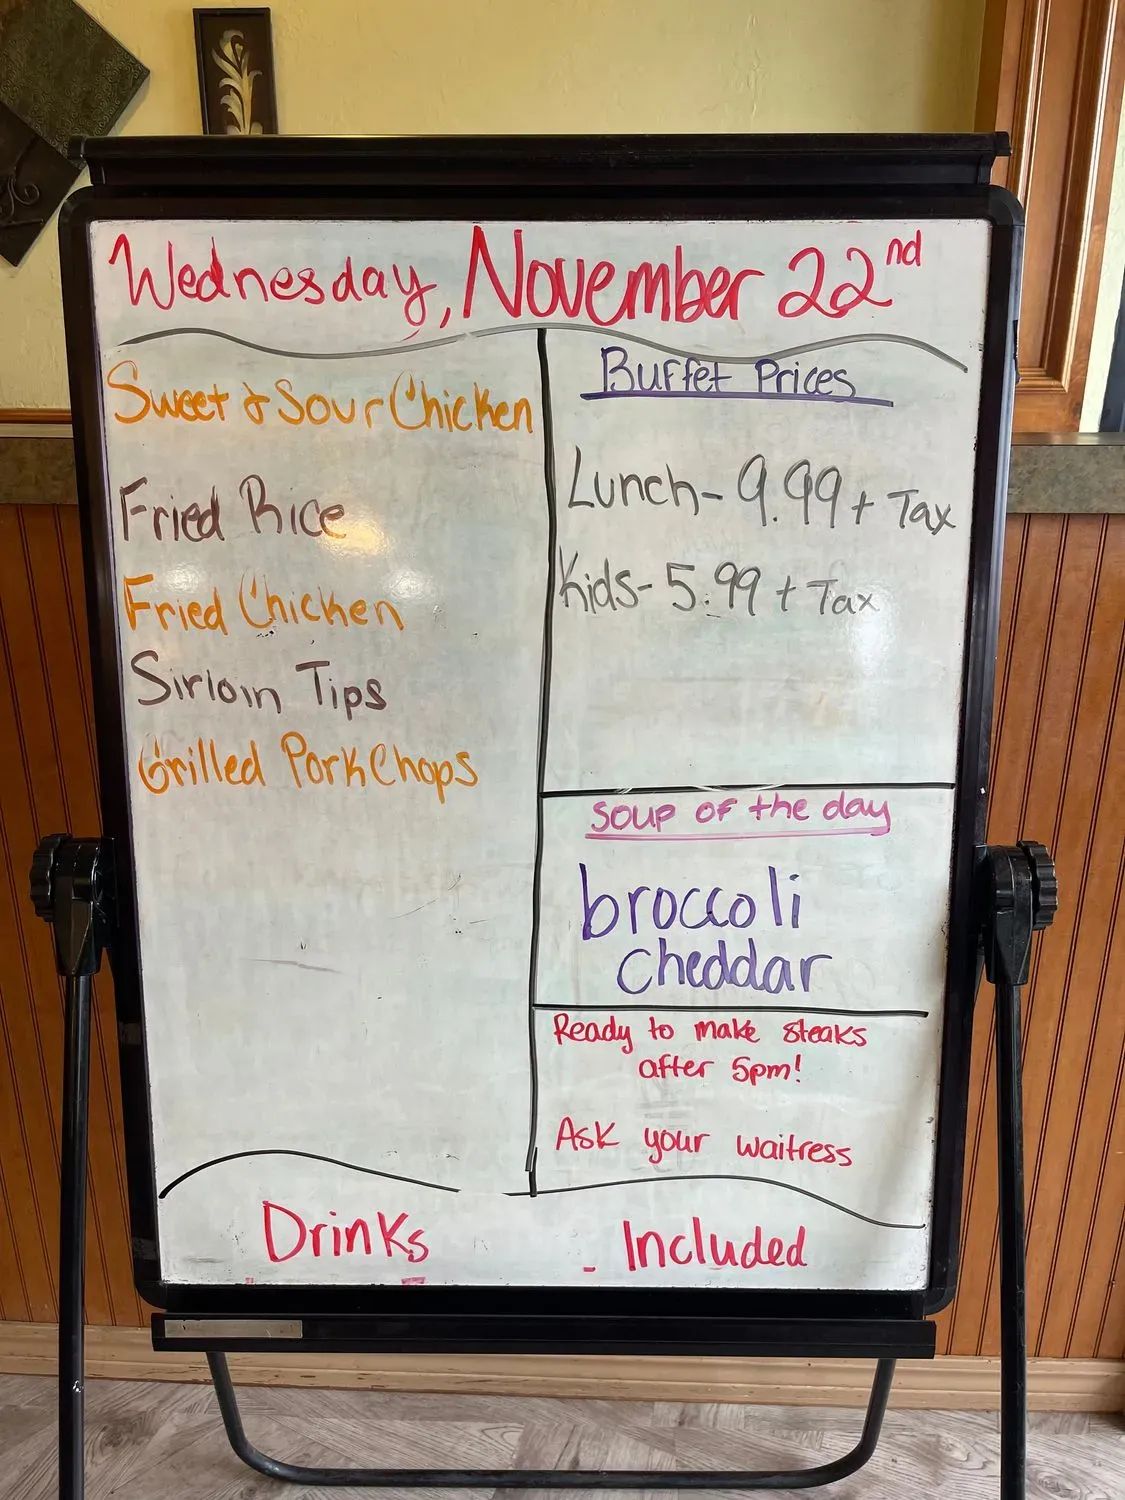 Wednesday, November 22nd
Sweet & Sour Chicken
Fried Rice
Fried Chicken
Sirloin Tips
Grilled Pork Chops
Buffet Prices
Lunch - 9.99 + Tax
Kids - 5.99 + Tax
soup of the day
broccoli
cheddar
Ready to make steaks
after 5pm!
Ask your waitress
Drinks - Included